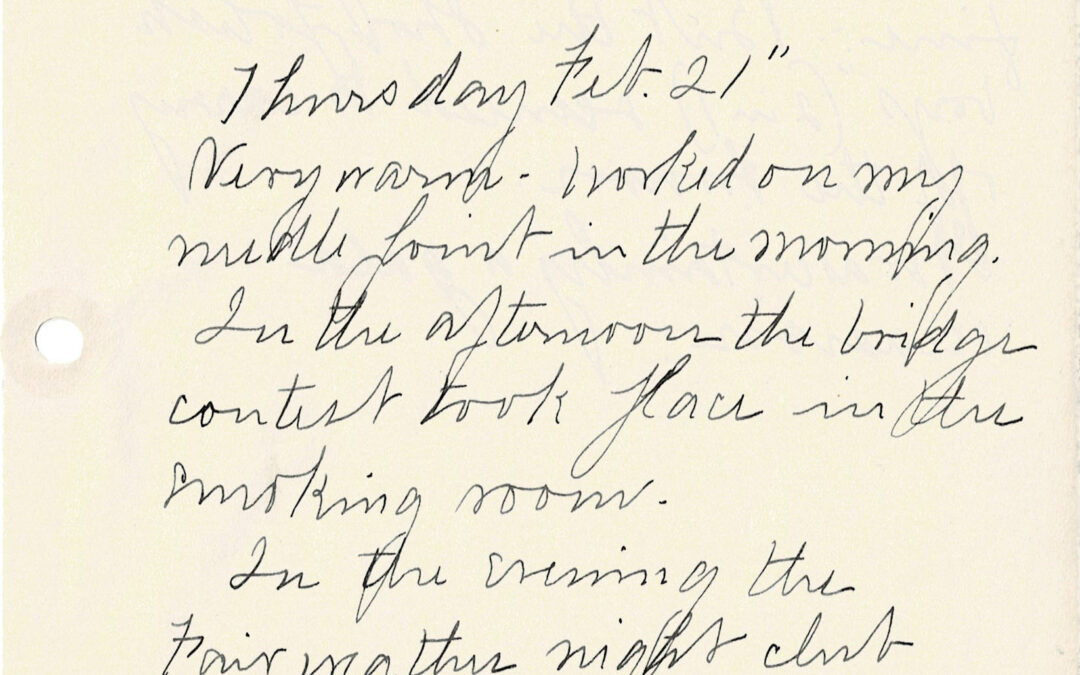 Thursday Feb. 21"
Very warm - worked on my
needle point in the morning.
In the afternoon the bridge
contest took place in the
smoking room.
In the evening the
Fairweather night club